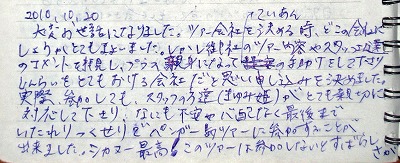 2010.10.20
大変お世話になりました。ツアー会社を決める時、どこの会社に
しようかとてもまよいました。しかし御社のツアー内容やスタッフの方達
のコメントを拝見し、プラスの親身になって ていあん 手助けをして下さり
しんらいをとてもおける会社だと思い申し込みを決めました。
実際、参加しても、スタッフの方達(まゆみ姫)がとても親切に
対応して下さり、なにも不安や心配なく最後まで
いたれりつくせりでペンギン島ツアーに参加することが
出来ました。シカヌー最高!このツアーは参加しないとずばらしさが